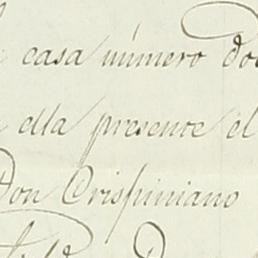 casa número do
ella presente el
Don Crispiniano